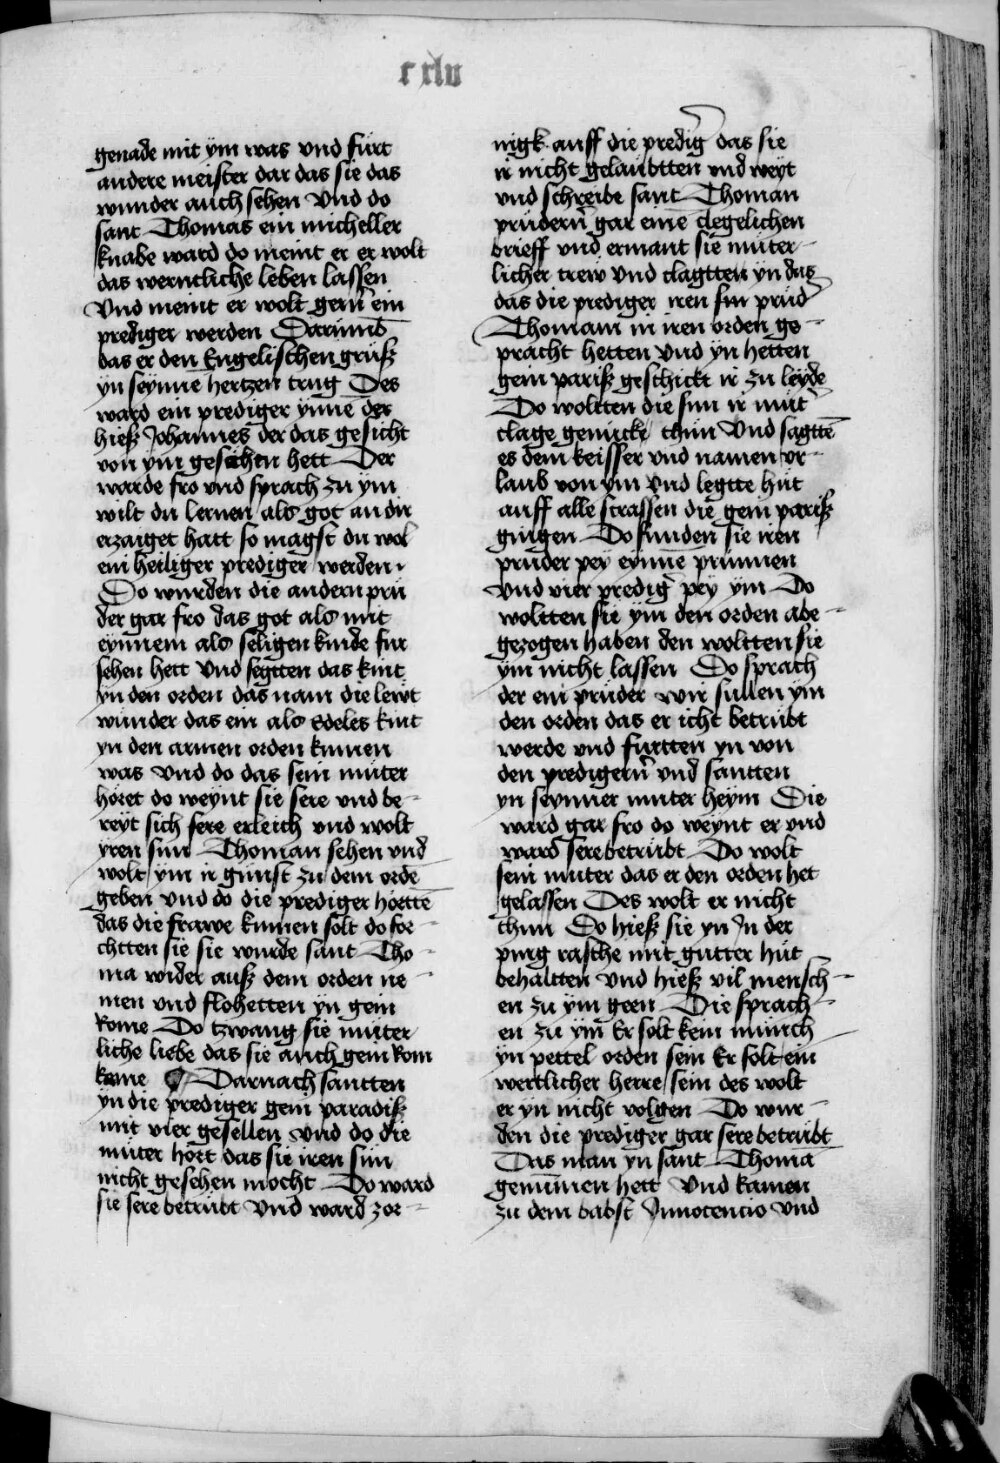 c xlv
genade mit ym was vnd fürt
andere meister dar das sie das
wunder auch sehen Vnd do
sant Thomas ein micheller
knabe ward do meint er er wolt
das werntliche leben lassen
Vnd meint er wolt gern̄ ein
prediger werden Darümb
das er den Engelischen gruß
yn seynne hertzen trug Des
ward ein prediger ynnē der
hieß Johannes der das gesicht
von ym gesehen hett Der
warde fro vnd sprach zu ym
wilt du lernen als got an dir
erzaiget hatt so magst du wol
ein heiliger prediger werden
Do wurden die andern prü
der gar fro das got als mit
eynnem als seligen kinde für
sehen hett Vnd segtten das kint
yn den orden das nam die lewt
wunder das ein als Edeles kint
yn den armen orden kumen
was Vnd do das sein müter
höret do weynt sie sere vnd be-
reyt sich sere erleich vnd wolt
yren sun Thoman sehen vnd
wolt ym ir gunst zu dem ordē
geben Vnd do die prediger hortē
das die frawe kumen solt do for-
chtten sie sie wurde sant Tho-
ma wider auß dem orden ne-
men vnd flohetten yn gein
Rome Do tzwang sie müter
liche liebe das sie auch gein Rom
kome Darnach santten
yn die prediger gein paradiß
mit vier gesellen vnd do die
müter hört das sie iren sun
nicht gesehen mocht Do ward
sie sere betrübt Vnd ward zor-
nigk auff die predig̉ das sie
ir nicht gelaubtten vnd weyt
vnd schreibe sant Thoman
prüdern̄ gar eine clegelichen
brieff vnd ermant sie müter-
licher trew Vnd clagtten yn das
das die prediger iren sun prüd̉
Thomam in iren orden ge-
pracht hetten Vnd yn hetten
gein pariß geschickt ir zu leyde
Do woltten die sun ir mut̉
clage genücke thun Vnd sagttē
es dem keisser vnd namen vr-
laub von ym Vnd legtte hüt
auff alle strassen die gein pariß
gingen Do funden sie iren
prüder pey eynnē prunnen
Vnd vier predig̉ pey ym Do
woltten sie ym den orden abe-
gezogen haben den woltten sie
ym nicht lassen Do sprach
der ein prüder wir sullen ym
den orden das er icht betrübt
werde vnd fürtten yn von
den predigern̄ vnd santten
yn seynner muter heym Die
ward gar fro do weynt er vnd
ward sere betrübt Do wolt
sein muter das er den orden het
gelassen Des wolt er nicht
thun Do hieß sie yn Jn der
purg rasche mit gutter hüt
behaltten Vnd hieß vil mensch-
en zu ym geen Die sprach-
en zu ym Er solt kein münch
yn pettel orden sein Er solt ein
wertlicher herre sein des wolt
er yn nicht volgen Do wur-
den die prediger gar sere betrübt
Das man yn sant Thoma
genümen hett Vnd kamen
zu dem babst Jnnocencio Vnd